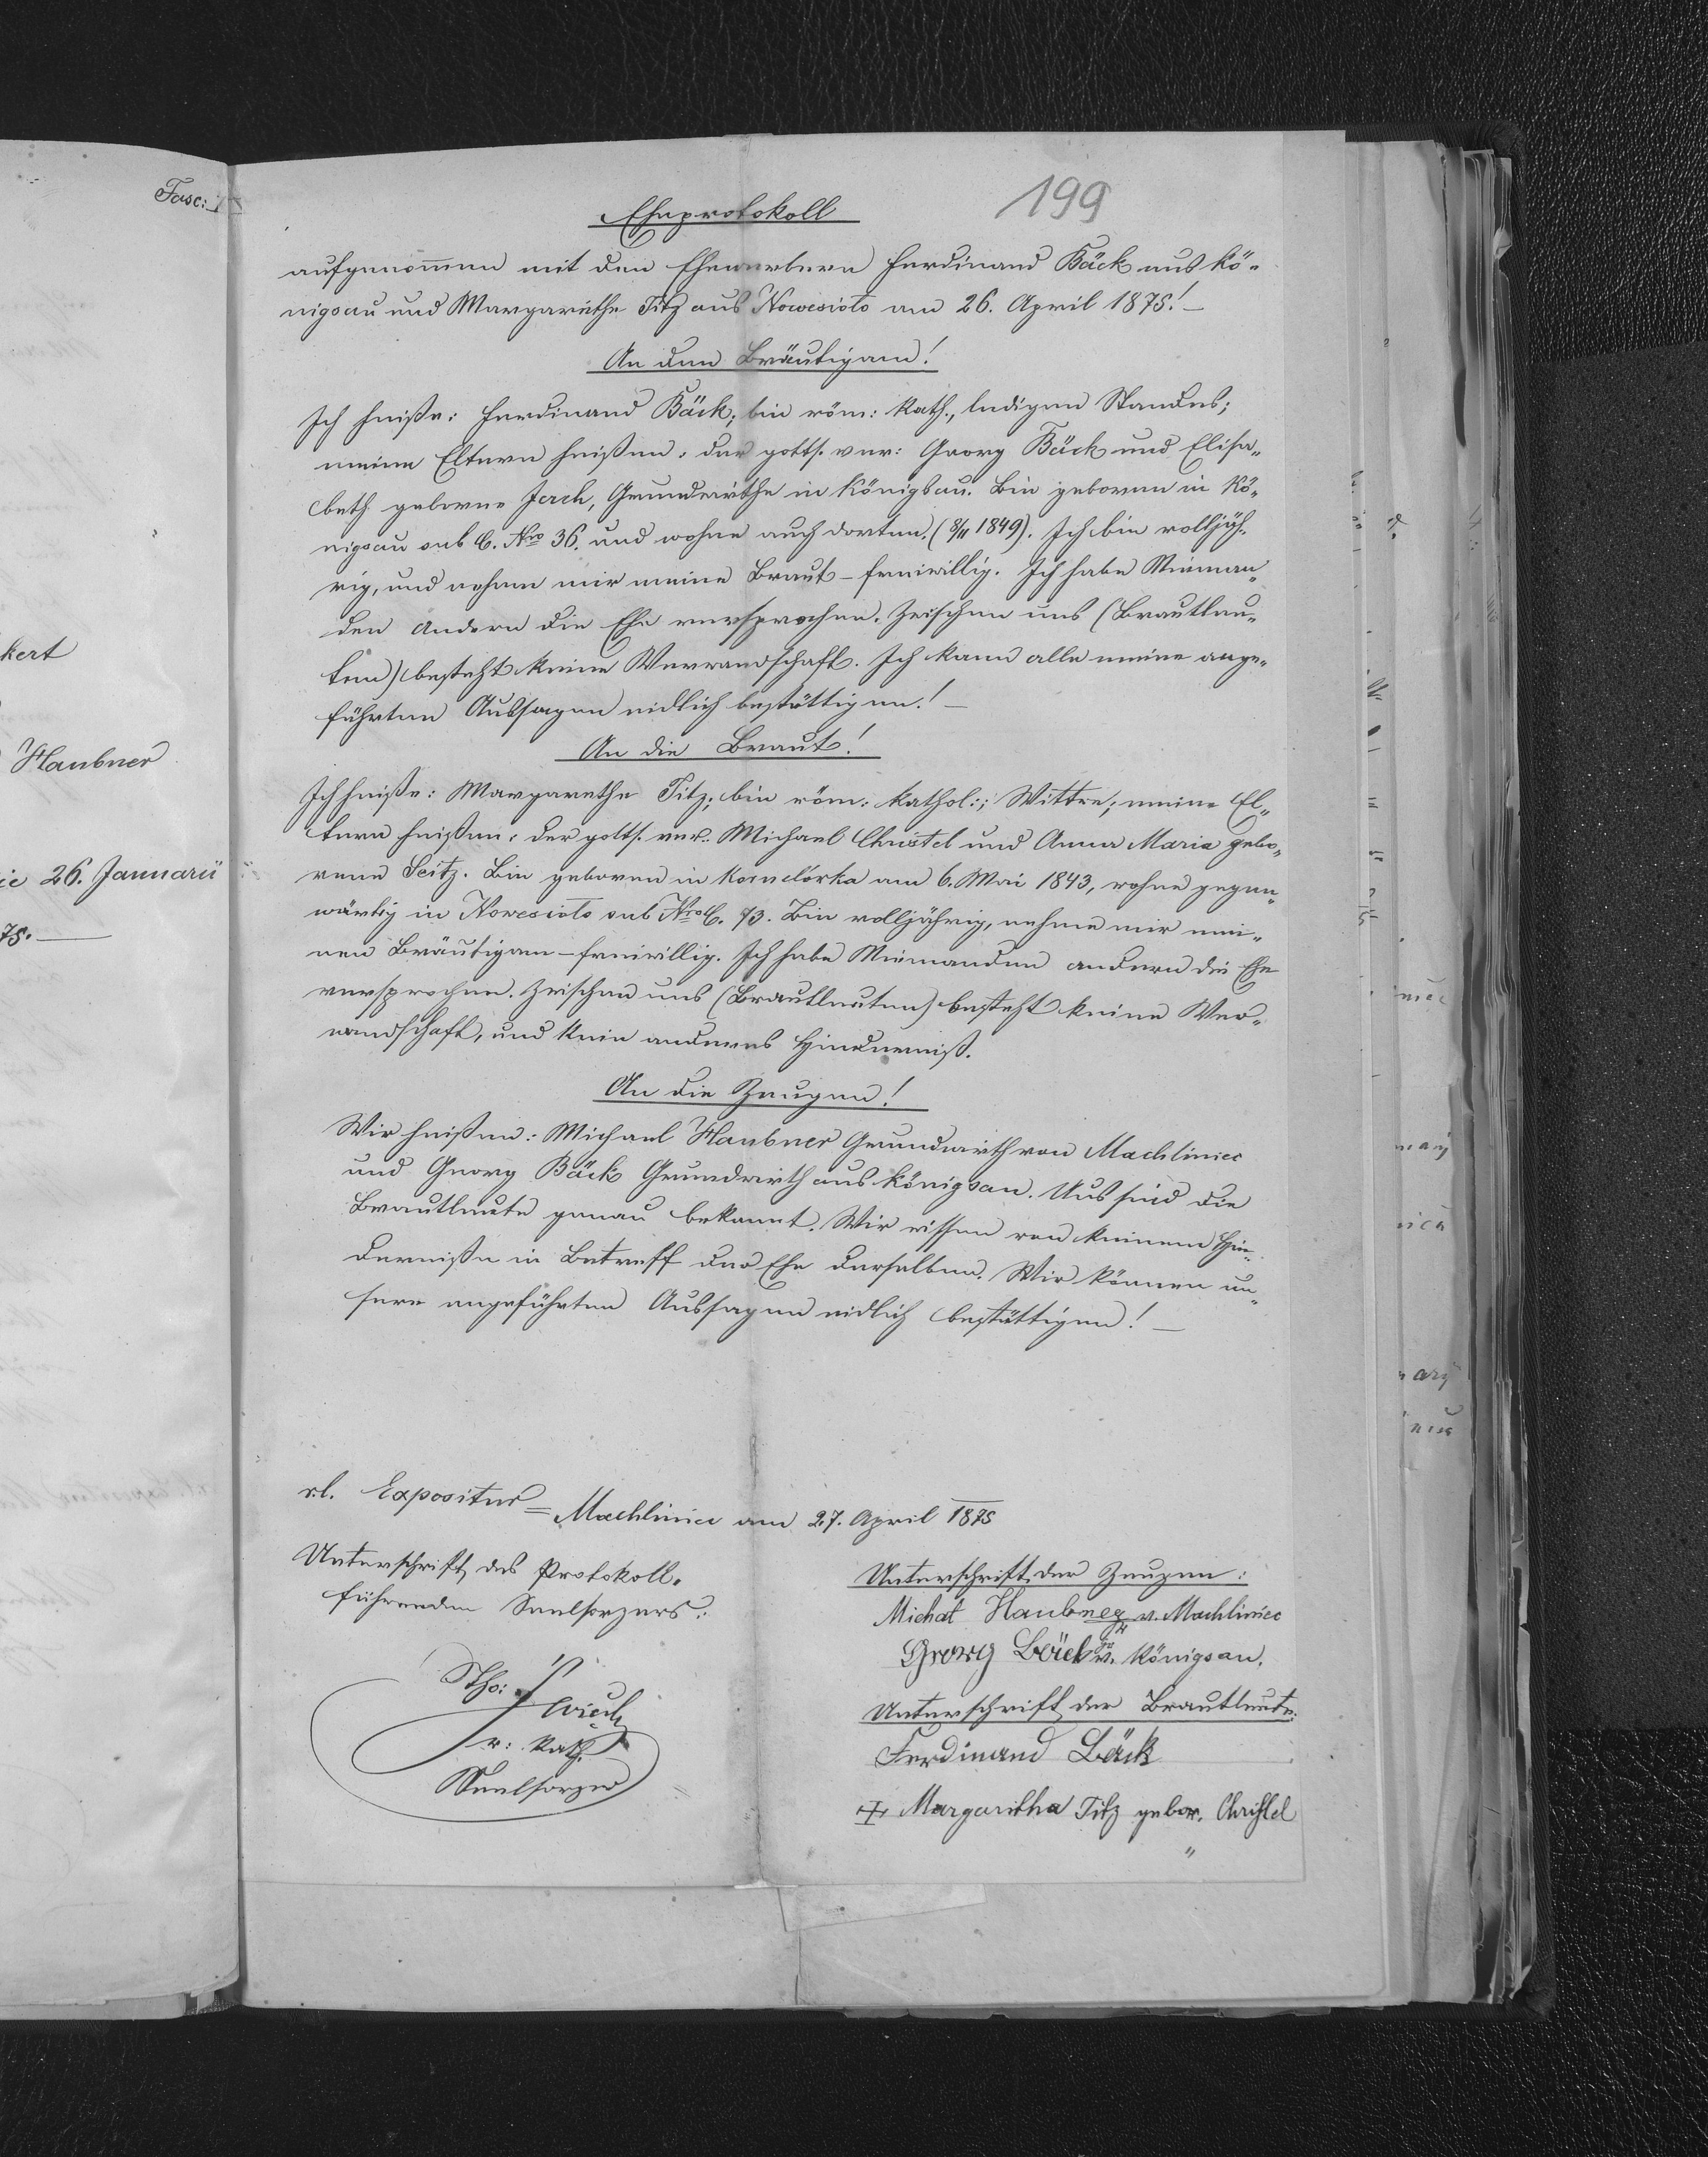 Fasc: I
kert
Haubner
ie 26. Januarii
75. —
199
Eheprotokoll
aufgenommen mit den Ehewerbern Ferdinand Bäck aus Kö-
nigsau und Margarethe Titz aus Nowesioto am 26. April 1875! —
An den Bräutigam!
Ich heiße: Ferdinand Bäck; bin röm: kath., ledigen Standes;
meine Eltern heißen: der gotts. ver: Georg Bäck und Elisa-
beth geborne Jerch, Grundwirthe in Königsau. Bin geboren in Kö-
nigsau sub C. Nro 36. und wohne auch dorten. (8/11 1849). Ich bin volljäh-
rig, und nehme mir meine Braut - freiwillig. Ich habe Nieman-
den Andern die Ehe versprochen. Zwischen uns (Brautleu-
ten) besteht keine Verwandschaft. Ich kann alle meine ange-
führten Aussagen eidlich bestättigen! —
An die Braut!
Ich heiße: Margarethe Titz; bin röm: kathol:; Wittwe; meine El-
tern heißen: der gotts. ver: Michael Christel und Anna Maria gebo-
rene Seitz. Bin geboren in Kornelówka am 6. Mai 1843, wohne gegen-
wärtig in Nowesioto sub Nro C. 73. Bin volljährig, nehme mir mei-
nen Bräutigam - freiwillig. Ich habe Niemanden andern die Ehe
versprochen. Zwischen uns (Brautleuten) besteht keine Ver-
wandschaft, und kein anderes Hinderniß.
An die Zeugen!
Wir heißen: Michael Haubner Grundwirth von Machliniec
und Georg Bäck Grundwirth aus Königsau. Uns sind die
Brautleute genau bekannt. Wir wissen von keinem Hin-
derniße in Betreff der Ehe derselben. Wir können un-
sere angeführten Aussagen eidlich bestättigen! —
r.l. Expositur = Machliniec am 27. April 1875
Unterschrift des Protokoll-
führenden Seelsorgers:
r: kath.
Seelsorger
Unterschrift der Zeugen:
Michał Haubner v. Machliniec
Georg Bäck v. Königsau.
Unterschrift der Brautleute:
Ferdinand Bäck
+ Margaritha Titz gebor. Christel